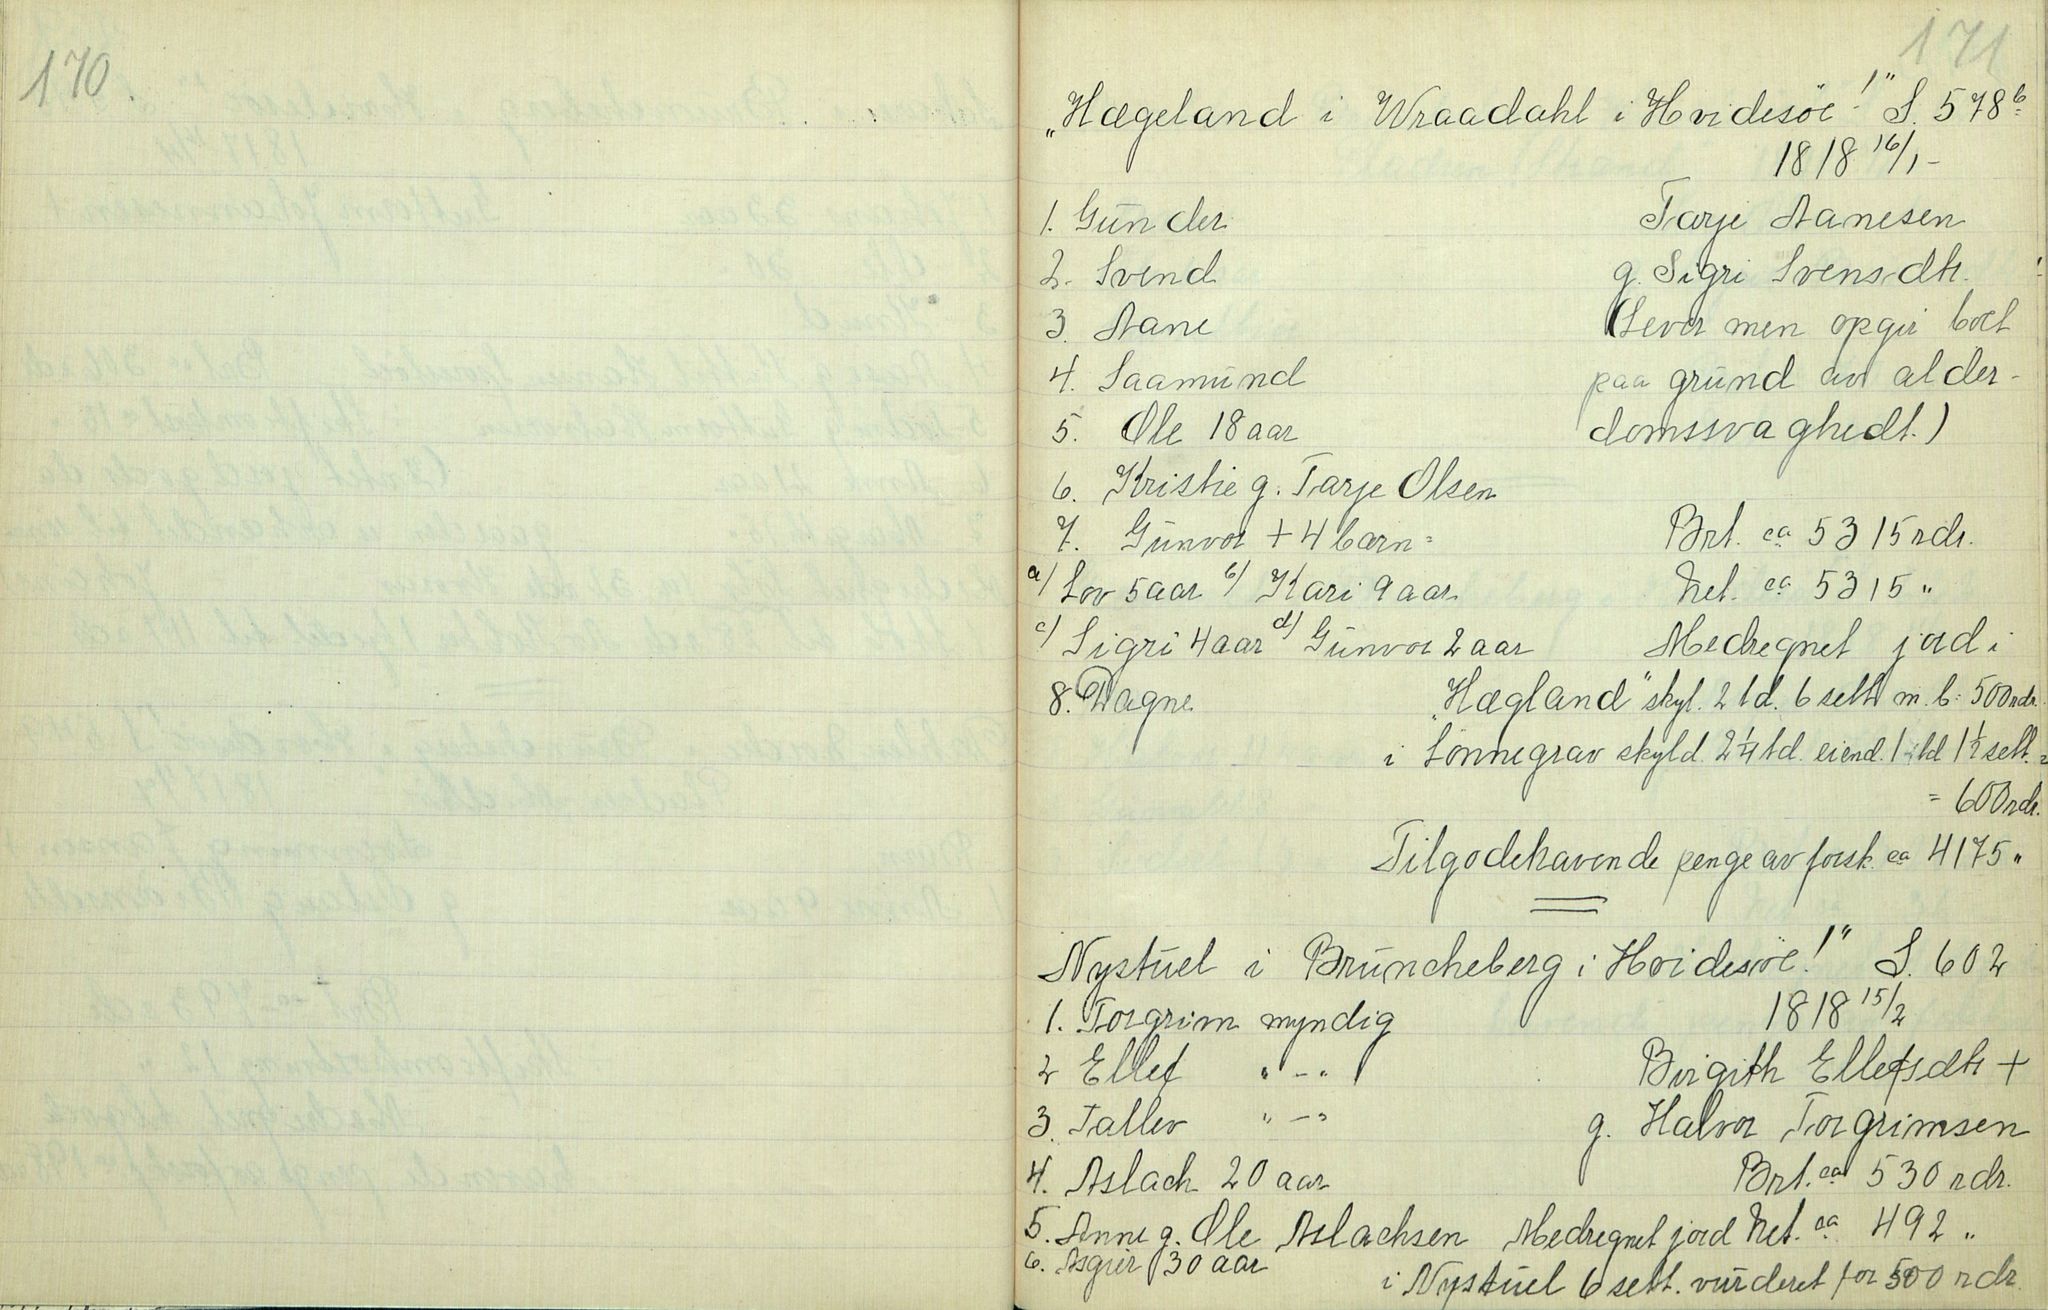 170
171
„Hægeland i Wraadahl i Hvidesöe!" S. 578 b
1818 16/1 -
1. Gunder Tarje Aanesen
2. Svend g. Sigri Svensdtr.
3. Aane (Lever men opgir boet
4. Saamund paa grund av alder-
5. Ole 18 aar domssvaghedt.)
6. Kristie g. Tarje Olsen
7. Gunvor + 4 barn = Brt. ca 5315 rdr.
a) Lov 5 aar b) Kari 9 aar Net. ca 5315 "
c) Sigri 4 aar d) Gunvor 2 aar Medregnet jord i
8. Dagne „Hægland" skyl. 2 td. 6 sett m. b. 500 rdr.
i Lönnegrav skyld. 2 1/4 td. eiend. 1 td 1 1/2 sett. =
= 600 rdr.
Tilgodehavende penge av forsk. ca 4175 "
Nystuel i Bruncheberg i Hvidesöe!" S. 602
1. Torgrim myndig 1818 15/2
2 Ellef " - " Birgith Ellefsdtr +
3. Tallev " - " g. Halvor Torgrimsen
4. Aslach 20 aar Brt. ca 530 rdr.
5. Anne g. Ole Aslachsen Medregnet jord Net. ca 492 "
6. Asgier 30 aar i Nystuel 6 sett. vurderet for 500 rdr